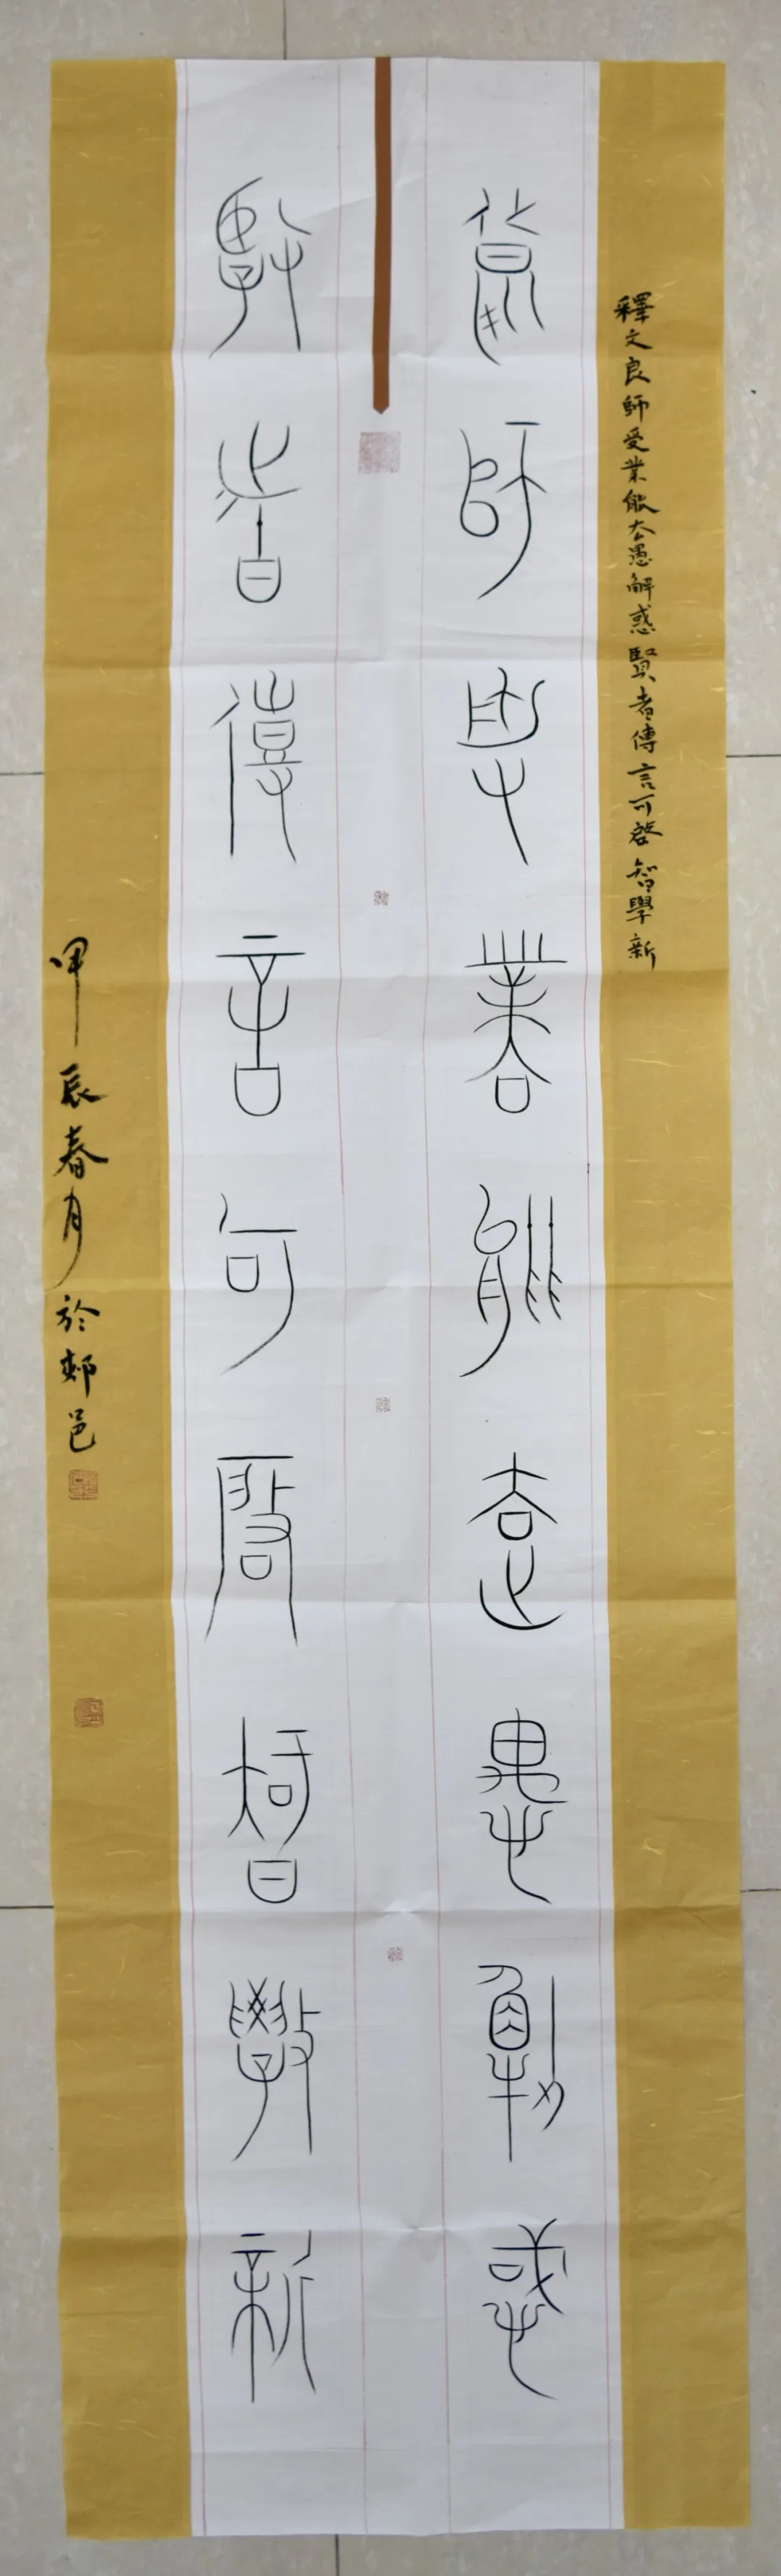 釋文良師受業能去愚解惑賢者傳言可啓智學新
良師受業能去愚解惑
賢者傳言可啓智學新
甲辰春月於郟邑